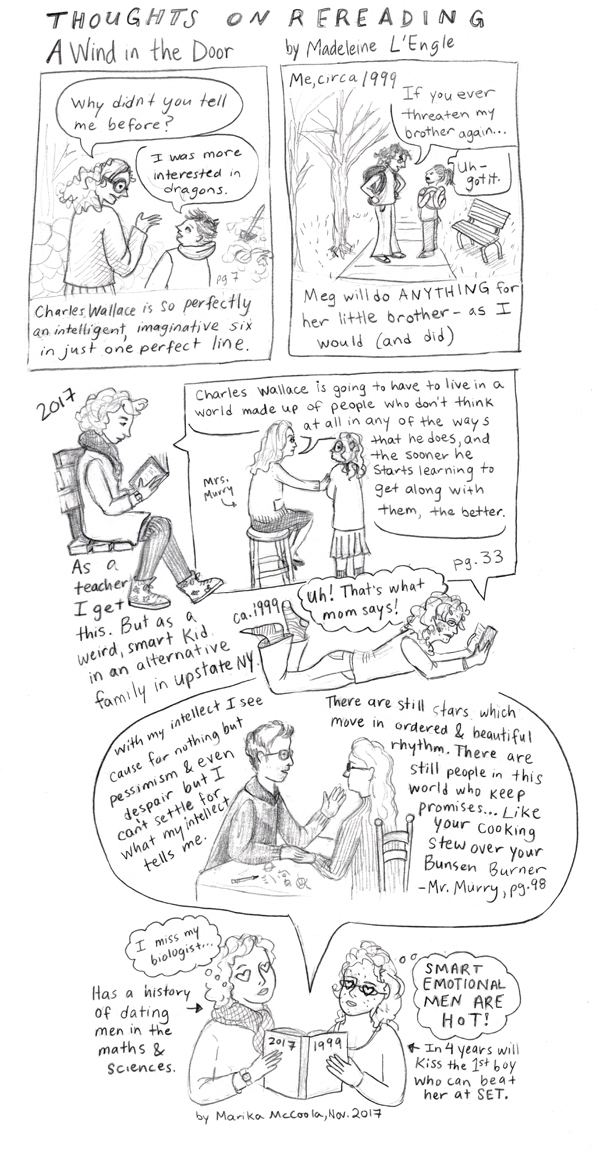 THOUGHTS ON REREADING
A Wind in the Door by Madeleine L'Engle
Why didn't you tell
me before?
I was more
interested in
dragons.
pg 7
Charles Wallace is so perfectly
an intelligent, imaginative six
in just one perfect line.
Me, circa 1999
If you ever
threaten my
brother again...
Uh-
got it.
Meg will do ANYTHING for
her little brother - as I
would (and did)
2017
Charles Wallace is going to have to live in a
world made up of people who don't think
at all in any of the ways
that he does, and
the sooner he
starts learning to
get along with
them, the better.
Mrs.
Murry
pg. 33
As a
teacher
I get
this. But as a
weird, smart kid
in an alternative
family in upstate NY.
ca. 1999
Uh! That's what
mom says!
With my intellect I see
cause for nothing but
pessimism & even
despair but I
can't settle for
what my intellect
tells me.
There are still stars which
move in ordered & beautiful
rhythm. There are
still people in this
world who keep
promises... Like
your cooking
stew over your
Bunsen Burner
-Mr. Murry, pg. 98
I miss my
biologist...
Has a history
of dating
men in the
maths &
sciences.
2017 1999
SMART
EMOTIONAL
MEN ARE
HOT!
In 4 years will
kiss the 1st boy
who can beat
her at SET.
by Marika McCoola, Nov. 2017